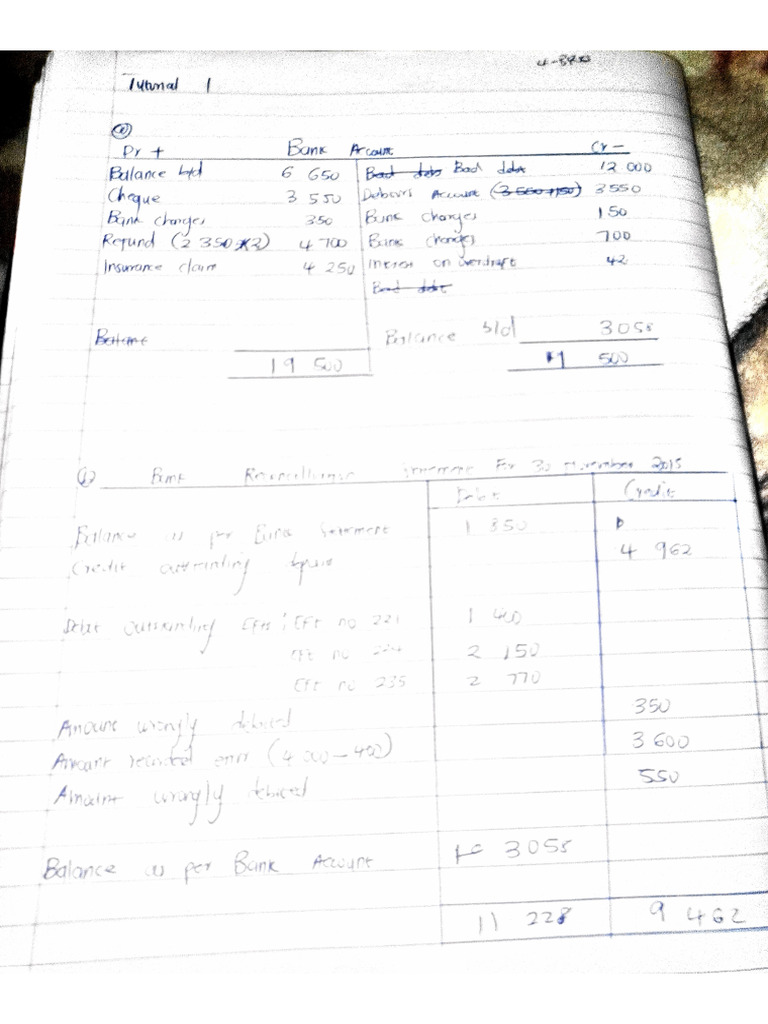 Tutorial 1
(a)
Dr + Bank Account Cr -
Balance b/d 6 650 Bad debt 12 000
Cheque 3 550 Debtors Account (3 560+150) 3 550
Bank charges 350 Bank charges 150
Refund (2 350 x 2) 4 700 Bank charges 700
Insurance claim 4 250 Interest on overdraft 42
Bad debt
Balance Balance b/d 3058
19 500 500
(b) Bank Reconciliation For 30 2015
Debit Credit
Balance as per Bank Statement 1 350
Credit outstanding 4 962
Debit outstanding Efts: Eft no 221 1 400
Eft no 224 2 150
Eft no 235 2 770
Amount wrongly debited 350
Amount recorded error (4 000 - 400) 3 600
Amount wrongly debited 550
Balance as per Bank Account 3058
11 228 9 462